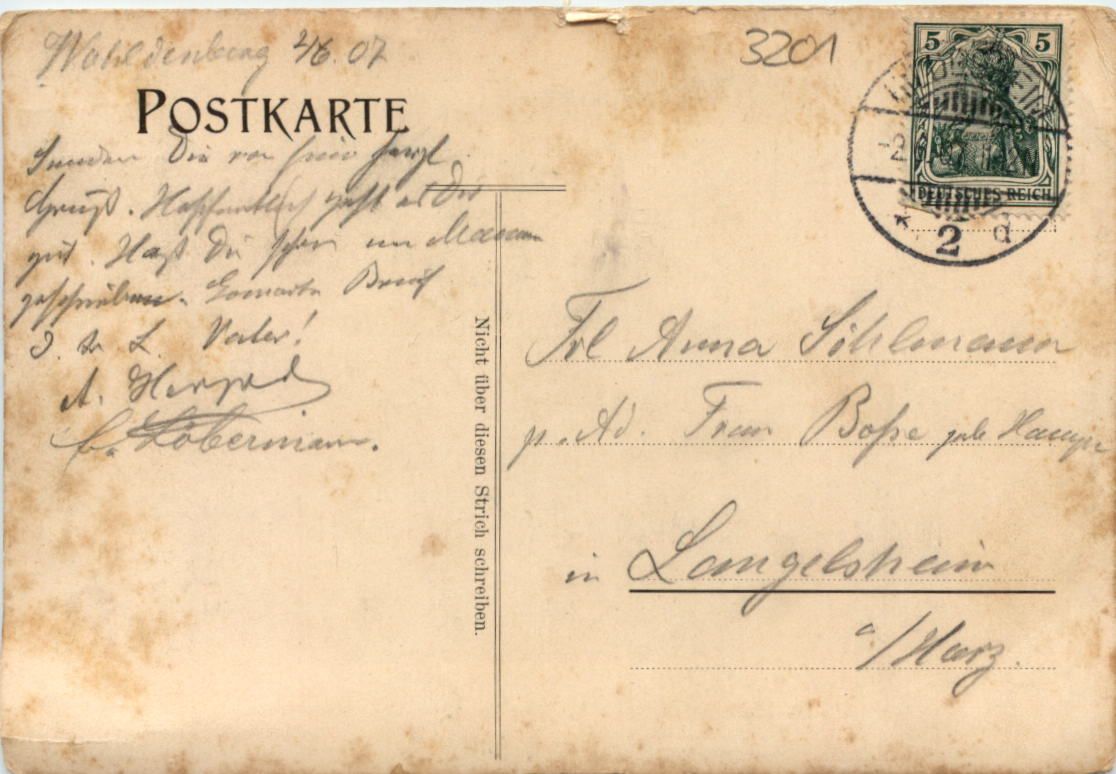 Wohldenberg 2/6. 07
3201
POSTKARTE
5 5
DEUTSCHES REICH
2 d
Senden Dir von hier herzl.
Gruß. Hoffentlich geht es Dir
gut. Hast Du schon an Mama
geschrieben. Erwarte Brief
D. Vater!
A.
Nicht über diesen Strich schreiben.
Frl Anna Söhlmann
p. Ad. Frau Boße geb.
in Langelsheim
a/Harz.